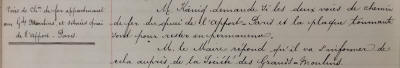 Voies de Ch^in de fer appartenant
aux G^ds Moulins et situés quai
de l'apport-Paris.
M. König demande si les deux voies de chemin
de fer du quai de l'apport-Paris et la plaque tournante
sont pour rester en permanence.
M. le Maire répond qu'il va s'informer de
cela auprès de la Société des Grands-Moulins.